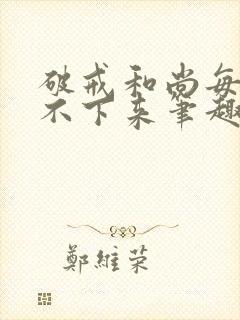 破戒和尚每
不下来笔趣
鄭維荣